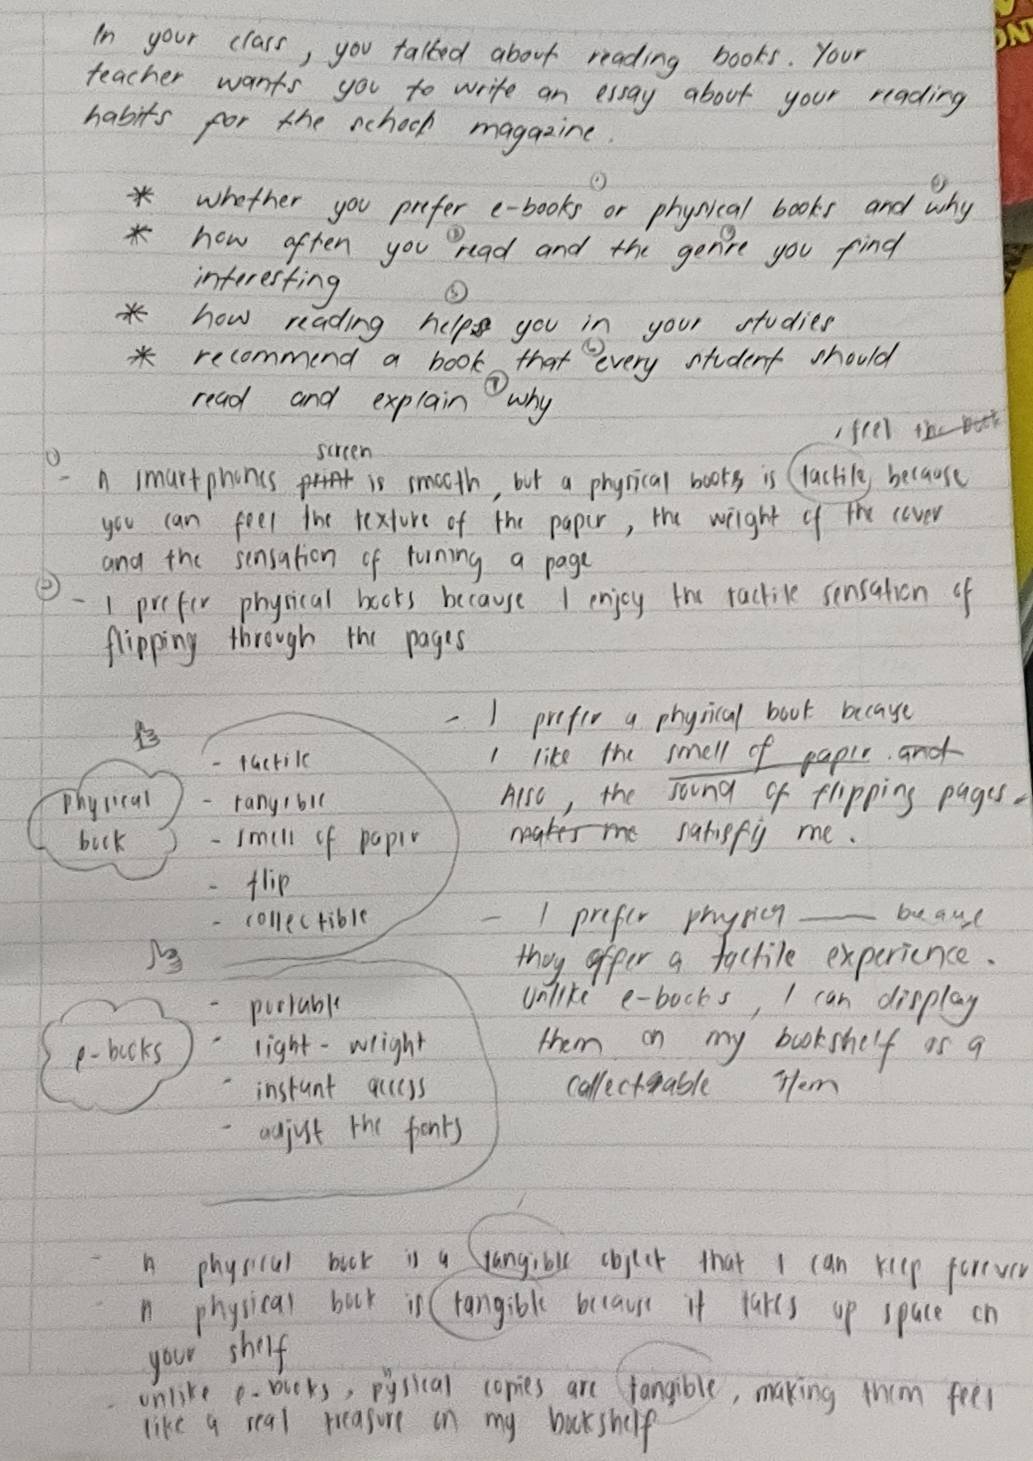 In your class, you talked about reading books. Your
teacher wants you to write an essay about your reading
habits for the school magazine.
* whether you prefer e-books ① or physical books and ② why
* how often you ③ read and the genre ④ you find
interesting
* how reading helps ⑤ you in your studies
* recommend a book that ⑥ every student should
read and explain ⑦ why
, feel the
① screen
- A smartphones print is smooth, but a physical books is tactile, because
you can feel the texture of the paper, the weight of the cover
and the sensation of turning a page
② - I prefer physical books because I enjoy the tactile sensation of
flipping through the pages
physical
book
- tactile
- tangible
- smell of paper
- flip
- collectible
- I prefer a physical book because
I like the smell of paper. and
Also, the sound of flipping pages
makes me satisfy me.
e-books
- portable
- light-weight
- instant access
- adjust the fonts
- I prefer physical ___ because
they offer a tactile experience.
Unlike e-books, I can display
them on my bookshelf as a
collectable item
- A physical book is a tangible object that I can keep forever
- A physical book is tangible because it takes up space on
your shelf
- unlike e-books, pysical copies are tangible, making them feel
like a real treasure on my bookshelf